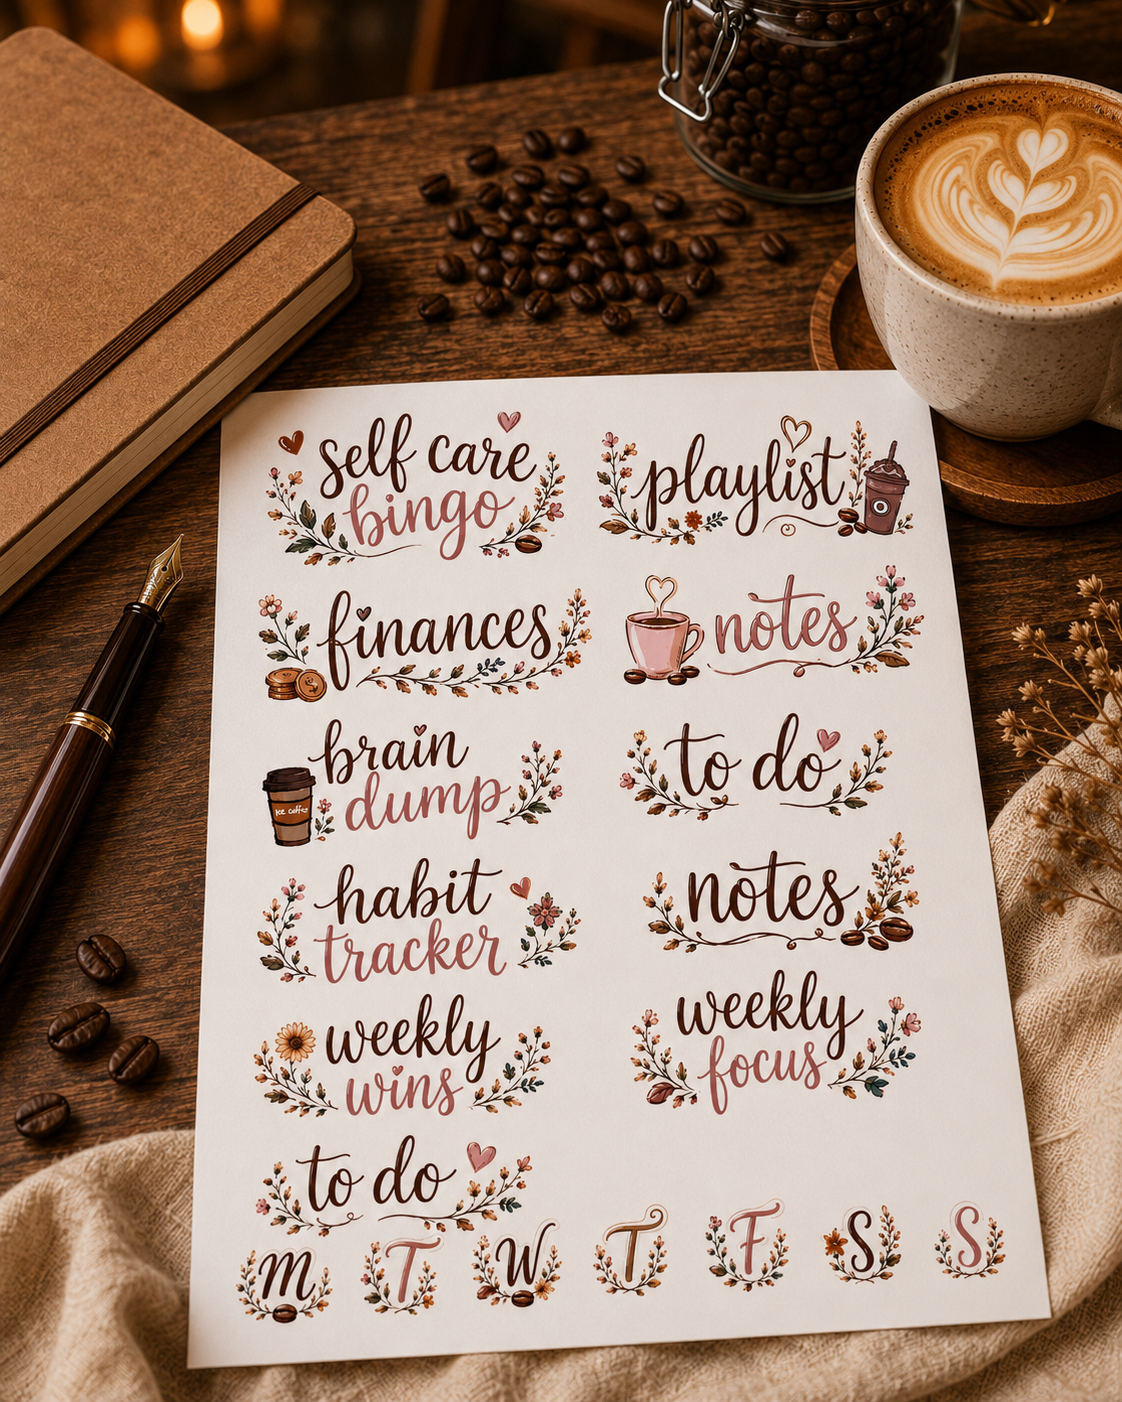 self care
bingo
playlist
finances
notes
brain
dump
Ice coffee
to do
habit
tracker
notes
weekly
wins
weekly
focus
to do
M T W T F S S